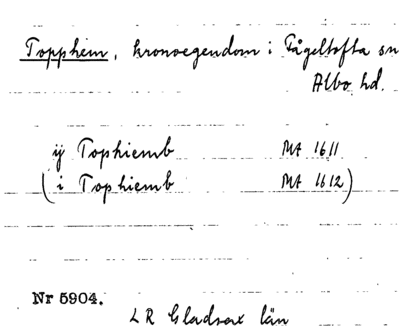 Topphem, kronoegendom i Fågeltofta sn
Albo hd.
ij Tophiemb MA 1611
(i Tophiemb MA 1612)
Nr 5904.
LR Gladsax län